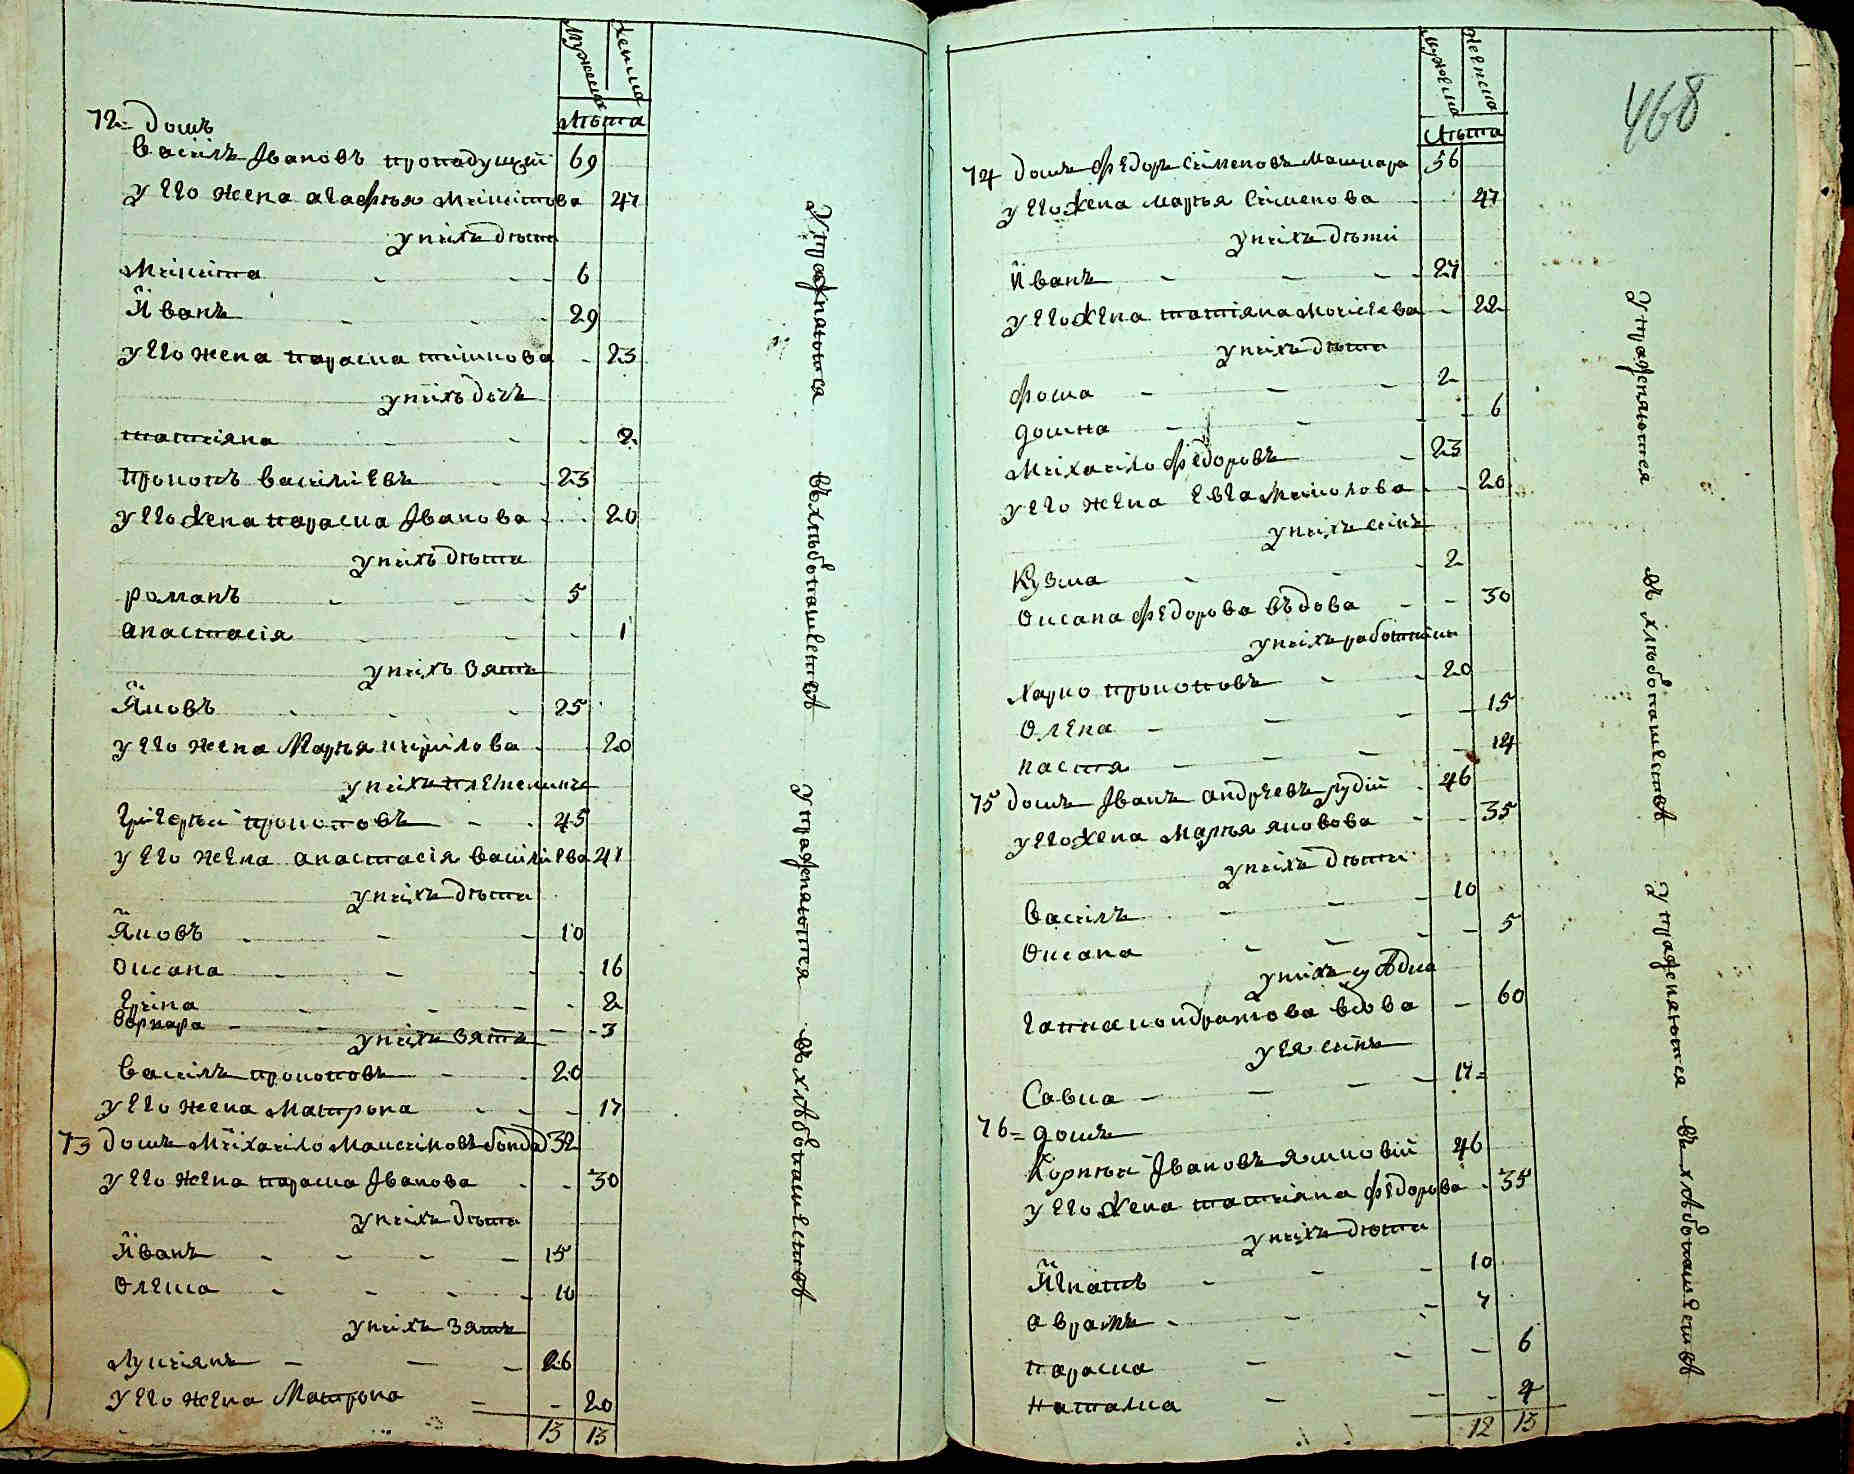 мужеска
женска
лѣта
72= домъ
Василь Ивановъ пропадущий 69
у его жена агафия микитова 47
у нихъ дѣти
микита - - - 6
Иванъ - - - 29
у его жена параска тишкова - 23
у нихъ дочь
татияна - - - 2
прокопъ василиевъ - - 23
у его жена параска Иванова - - 20
у нихъ дѣти
романъ - - - 5
анастасія - - - 1
у нихъ зять
Яковъ - - - 25
у его жена Марья кирилова - 20
у нихъ племеникъ
григерий прокоповъ - - 45
у его жена анастасія василиева 41
у нихъ дѣти
Яковъ - - - 10
оксана - - - - 16
ирина - - - - 2
варвара - - - - 3
у нихъ зять
василь прокоповъ - - 20
у его жена Матрона - - - 17
73 домъ Михаило Максимовъ бонда 32
у его жена параска Иванова - - 30
у нихъ дѣти
Иванъ - - - - 15
олекса - - - - 10
у нихъ зять
лукиянъ - - - 26
у его жена Матрона = - 20
13 13
Упражняются въ хлѣбопашествѣ
Упражняются въ хлѣбопашествѣ
468
мужеска
женска
лѣта
74 домъ Федоръ Сѣменовъ Машкара 56
у его жена марья Сѣменова - 47
у нихъ дѣти
Иванъ - - - 27
у его жена татияна Моисеева - 22
у нихъ дѣти
фома - - - 2
домна - - - - 6
михаило Федоровъ - 23
у его жена Евга Миколова - - 20
у нихъ синъ
Кузма - - 2
оксана Федорова въдова - - 30
у нихъ работники
харко прокоповъ - - 20
олена - - - - 15
настя - - - - 14
75 домъ Иванъ андреевъ рудій - 46
у его жена Марья яковова - - 35
у нихъ дѣти
василь - - - 10
оксана - - - - 5
у нихъ
ганна кондратова вдова - 60
у ея синъ
Савка - - - 17=
76= домъ
Корнѣй Ивановъ яхновій 46
у его жена татияна Федорова - 35
у нихъ дѣти
Игнатъ - - - 10
аврамъ - - - 7
параска - - - 6
наталка - - - 4
12 13
Упражняются въ хлѣбопашествѣ
Упражняются въ хлѣбопашествѣ